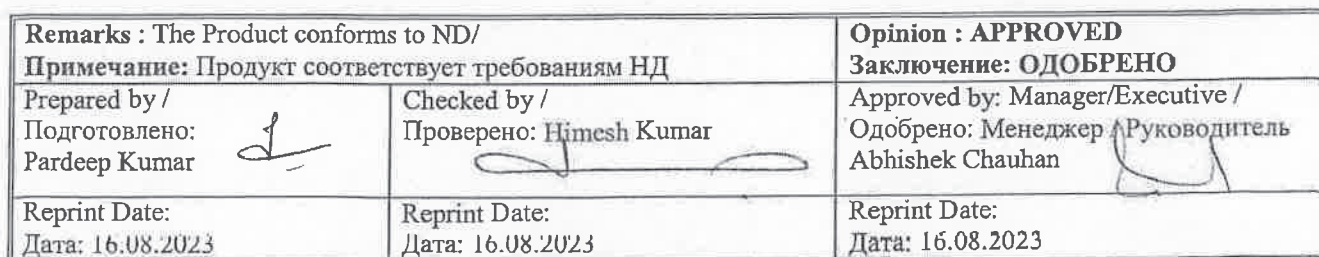 Remarks : The Product conforms to ND/
Примечание: Продукт соответствует требованиям НД
Opinion : APPROVED
Заключение: ОДОБРЕНО
Prepared by /
Подготовлено:
Pardeep Kumar
Checked by /
Проверено: Himesh Kumar
Approved by: Manager/Executive /
Одобрено: Менеджер /Руководитель
Abhishek Chauhan
Reprint Date:
Дата: 16.08.2023
Reprint Date:
Дата: 16.08.2023
Reprint Date:
Дата: 16.08.2023